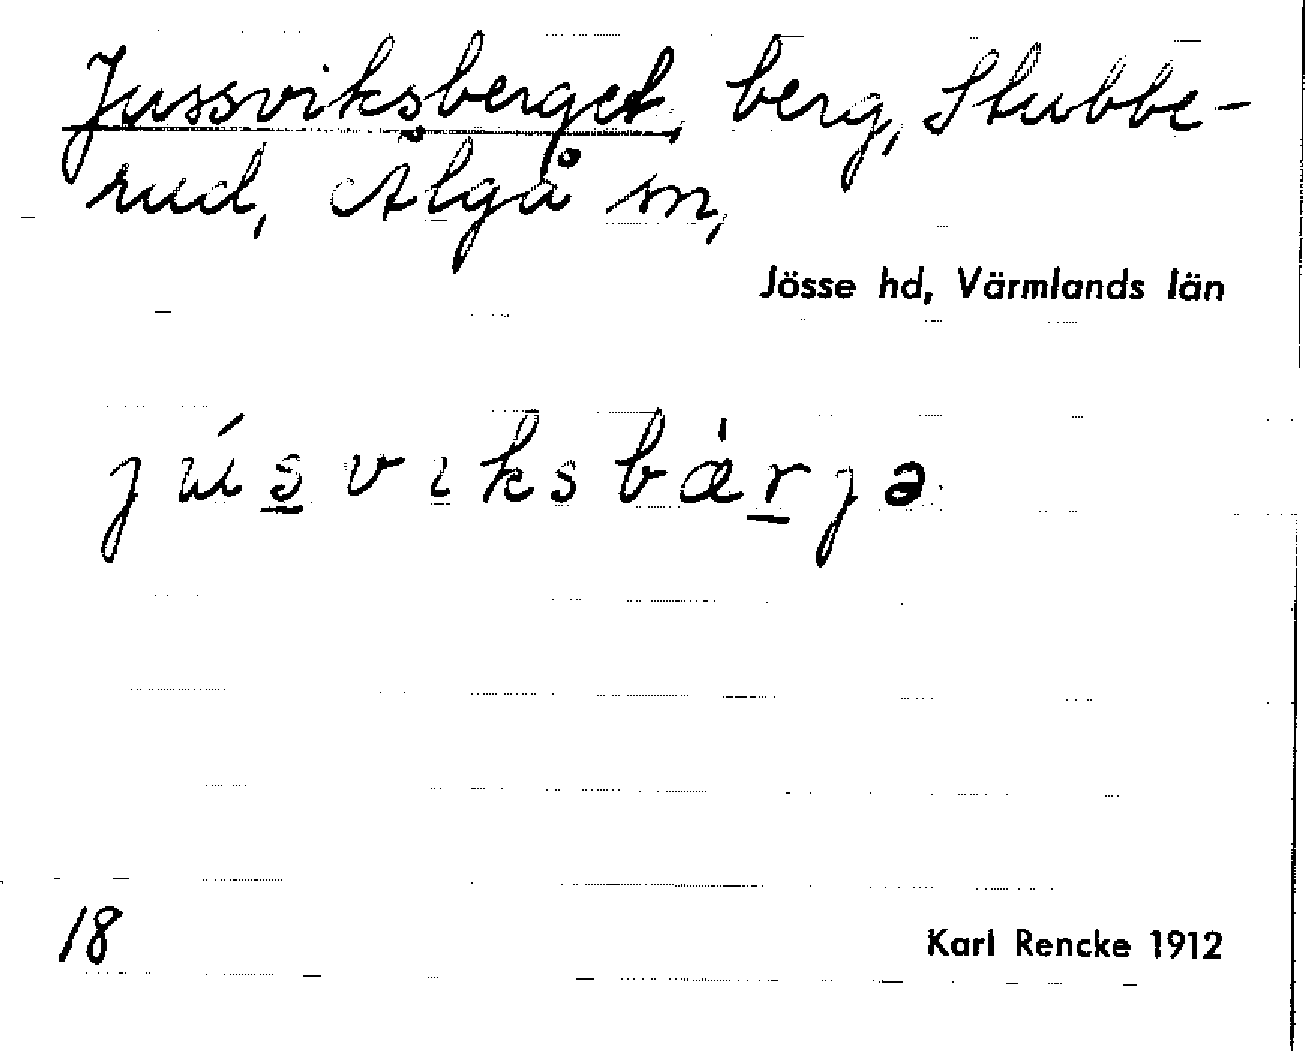 Jussviksberget, berg, Stubbe-
rud, Älgå sn,
Jösse hd, Värmlands län
júsviksbærjə
18
Karl Rencke 1912